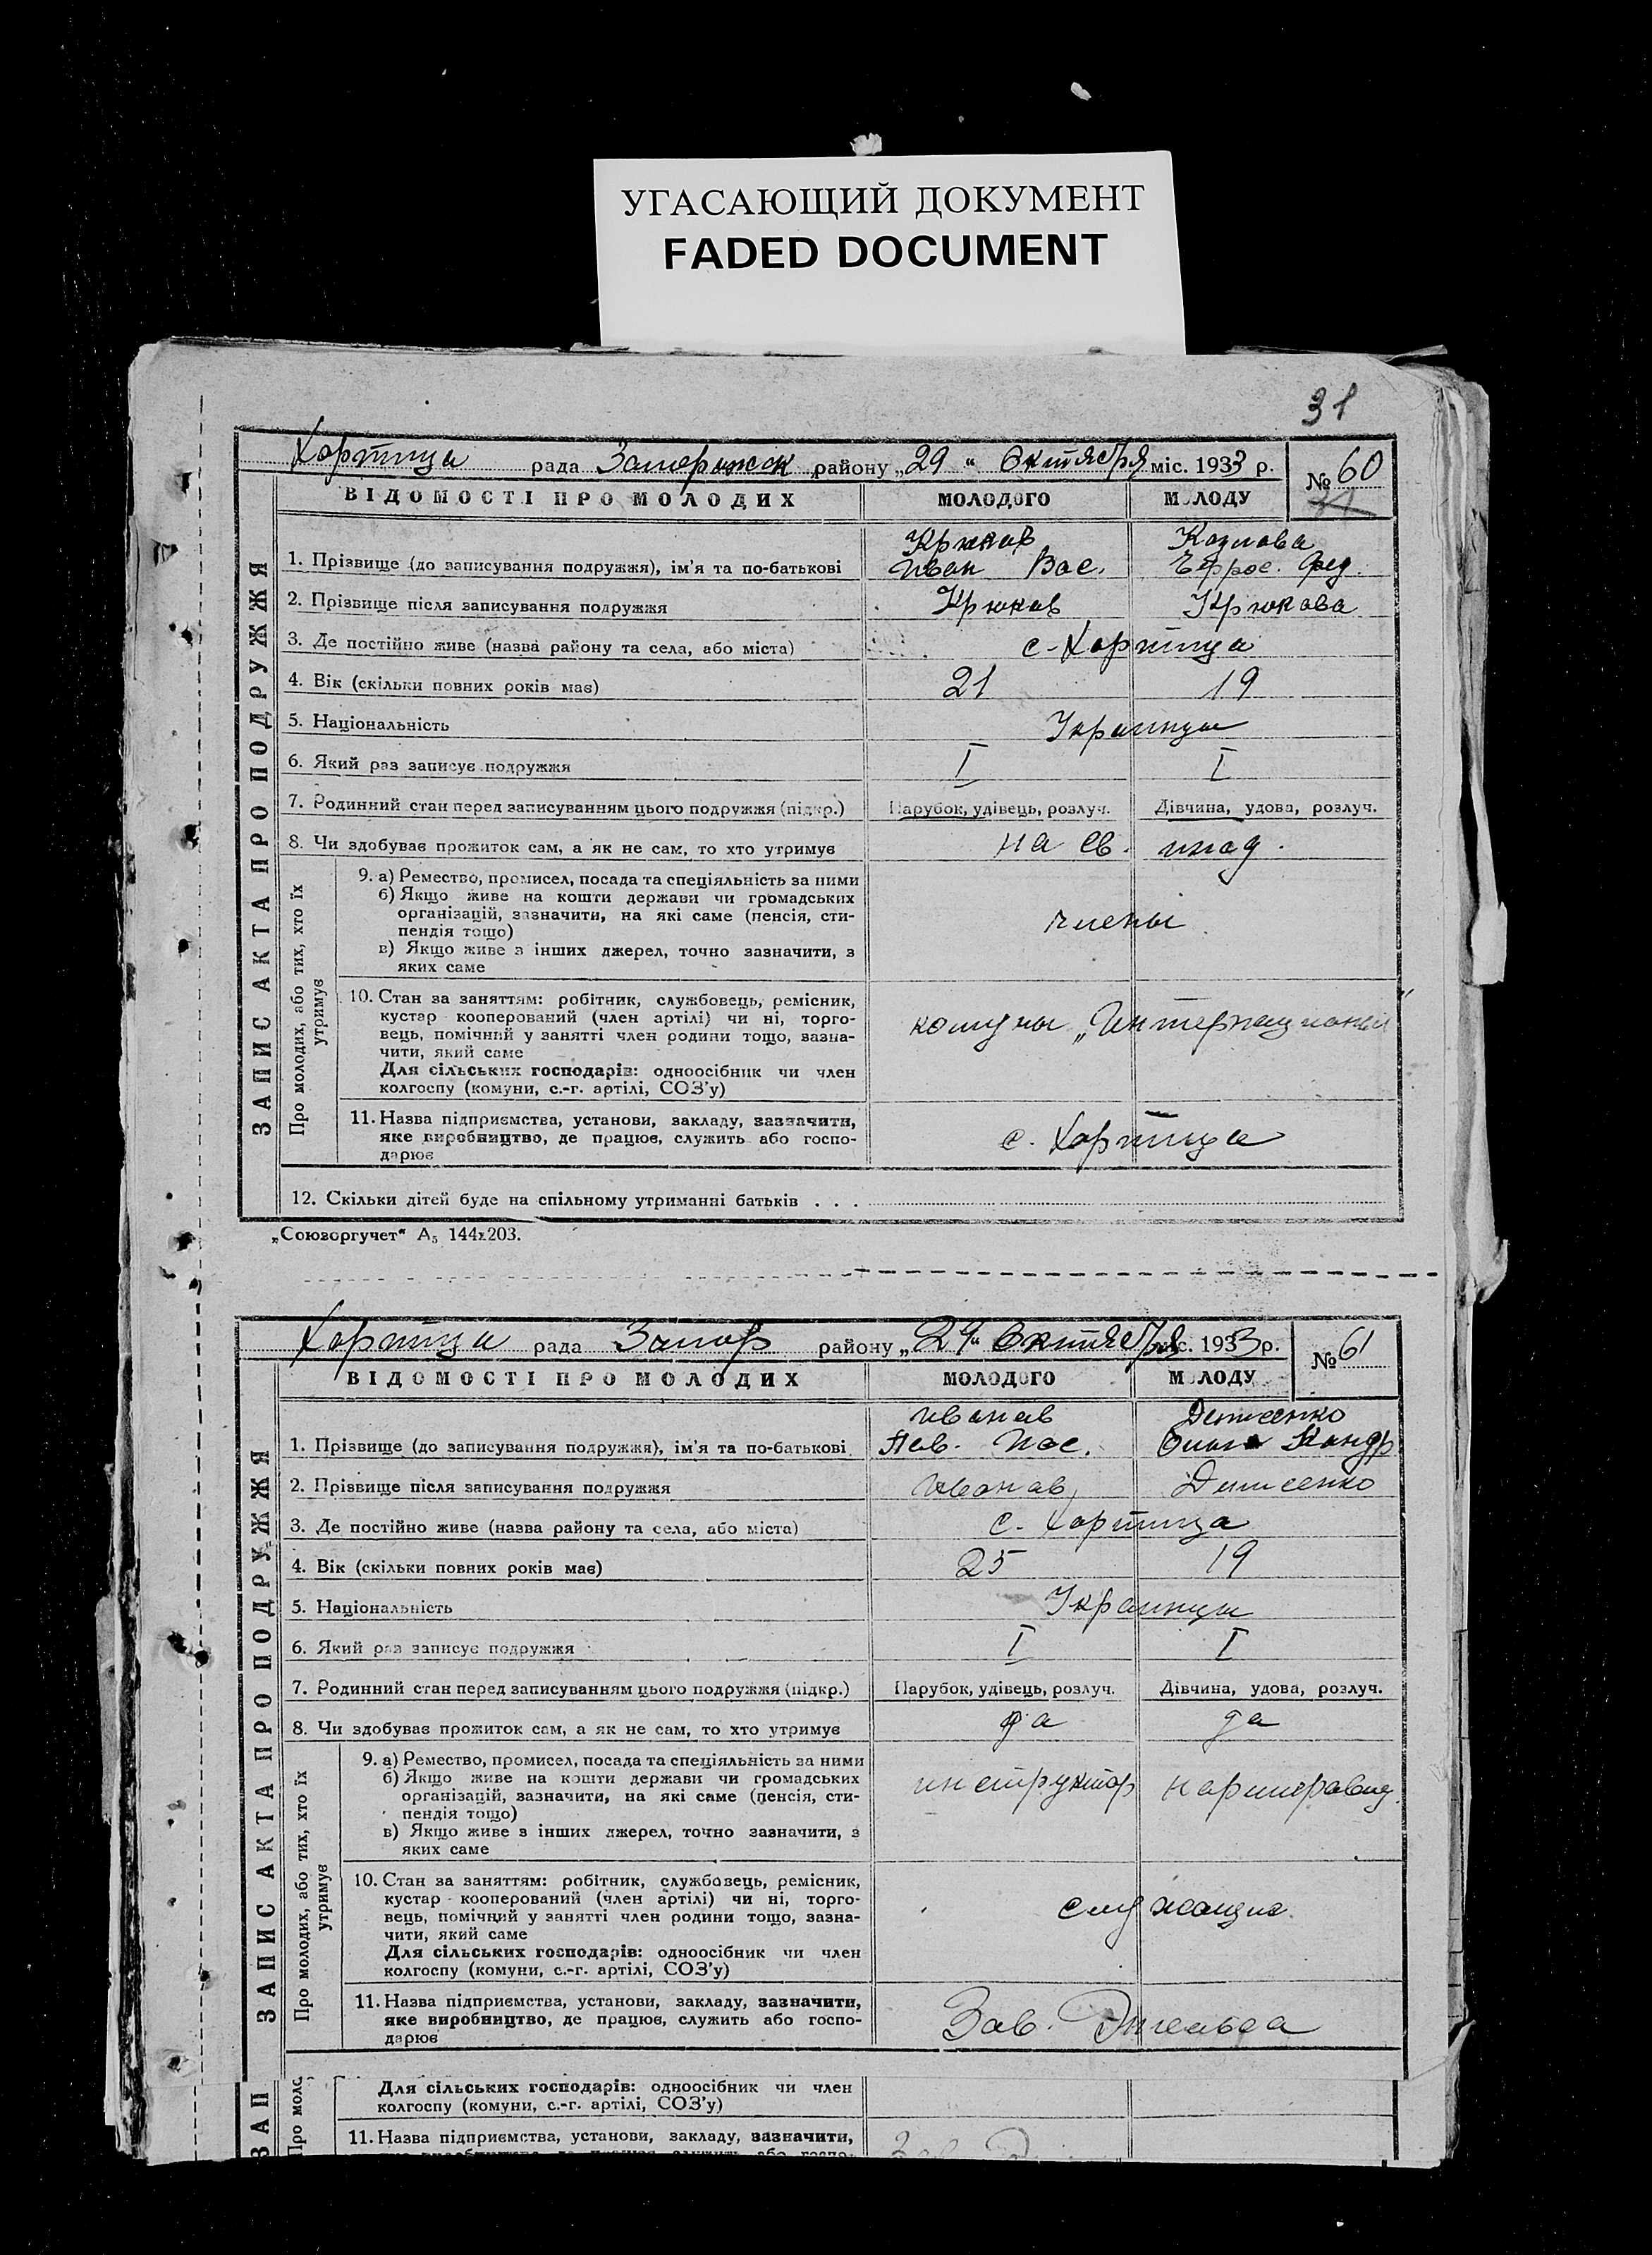 УГАСАЮЩИЙ ДОКУМЕНТ
FADED DOCUMENT
31
Хортица рада Запорожск району „29“ Октября міс. 1933 р.
№ 60
ВІДОМОСТІ ПРО МОЛОДИХ МОЛОДОГО МОЛОДУ
ЗАПИС АКТА ПРО ПОДРУЖЖЯ
Крюков Козлова
1. Прізвище (до записування подружжя), ім'я та по-батькові Иван Вас. Ефрос. Фед.
2. Прізвище після записування подружжя Крюков Крюкова
3. Де постійно живе (назва району та села, або міста) с. Хортица
4. Вік (скільки повних років має) 21 19
5. Національність Украинцы
6. Який раз записує подружжя I I
7. Родинний стан перед записуванням цього подружжя (підкр.) Парубок, удівець, розлуч. Дівчина, удова, розлуч.
8. Чи здобуває прожиток сам, а як не сам, то хто утримує на св.
Про молодих, або тих, хто їх утримує
9. а) Ремество, промисел, посада та спеціяльність за ними
б) Якщо живе на кошти держави чи громадських
організацій, зазначити, на які саме (пенсія, сти-
пендія тощо)
члены
в) Якщо живе з інших джерел, точно зазначити, з
яких саме
10. Стан за заняттям: робітник, службовець, ремісник,
кустар кооперований (член артілі) чи ні, торго-
вець, помічний у занятті член родини тощо, зазна-
чити, який саме
комуны „Интернационал“
Для сільських господарів: одноосібник чи член
колгоспу (комуни, с.-г. артілі, СОЗ'у)
11. Назва підприємства, установи, закладу, зазначити,
яке виробництво, де працює, служить або госпо-
дарює
с. Хортица
12. Скільки дітей буде на спільному утриманні батьків . . .
„Союзоргучет“ А₅ 144х203.
Хортица рада Запор району „29“ Октября міс. 1933 р.
№ 61
ВІДОМОСТІ ПРО МОЛОДИХ МОЛОДОГО МОЛОДУ
ЗАПИС АКТА ПРО ПОДРУЖЖЯ
Иванов Денисенко
1. Прізвище (до записування подружжя), ім'я та по-батькові Пав. Ольга Кондр
2. Прізвище після записування подружжя Иванов Денисенко
3. Де постійно живе (назва району та села, або міста) с. Хортица
4. Вік (скільки повних років має) 25 19
5. Національність Украинцы
6. Який раз записує подружжя I I
7. Родинний стан перед записуванням цього подружжя (підкр.) Парубок, удівець, розлуч. Дівчина, удова, розлуч.
8. Чи здобуває прожиток сам, а як не сам, то хто утримує да да
Про молодих, або тих, хто їх утримує
9. а) Ремество, промисел, посада та спеціяльність за ними
б) Якщо живе на кошти держави чи громадських
організацій, зазначити, на які саме (пенсія, сти-
пендія тощо)
инструктор нормировщ.
в) Якщо живе з інших джерел, точно зазначити, з
яких саме
10. Стан за заняттям: робітник, службовець, ремісник,
кустар кооперований (член артілі) чи ні, торго-
вець, помічний у занятті член родини тощо, зазна-
чити, який саме
служащие
Для сільських господарів: одноосібник чи член
колгоспу (комуни, с.-г. артілі, СОЗ'у)
11. Назва підприємства, установи, закладу, зазначити,
яке виробництво, де працює, служить або госпо-
дарює
Зав. Энгельса
ЗАП
Про моло
Для сільських господарів: одноосібник чи член
колгоспу (комуни, с.-г. артілі, СОЗ'у)
11. Назва підприємства, установи, закладу, зазначити,